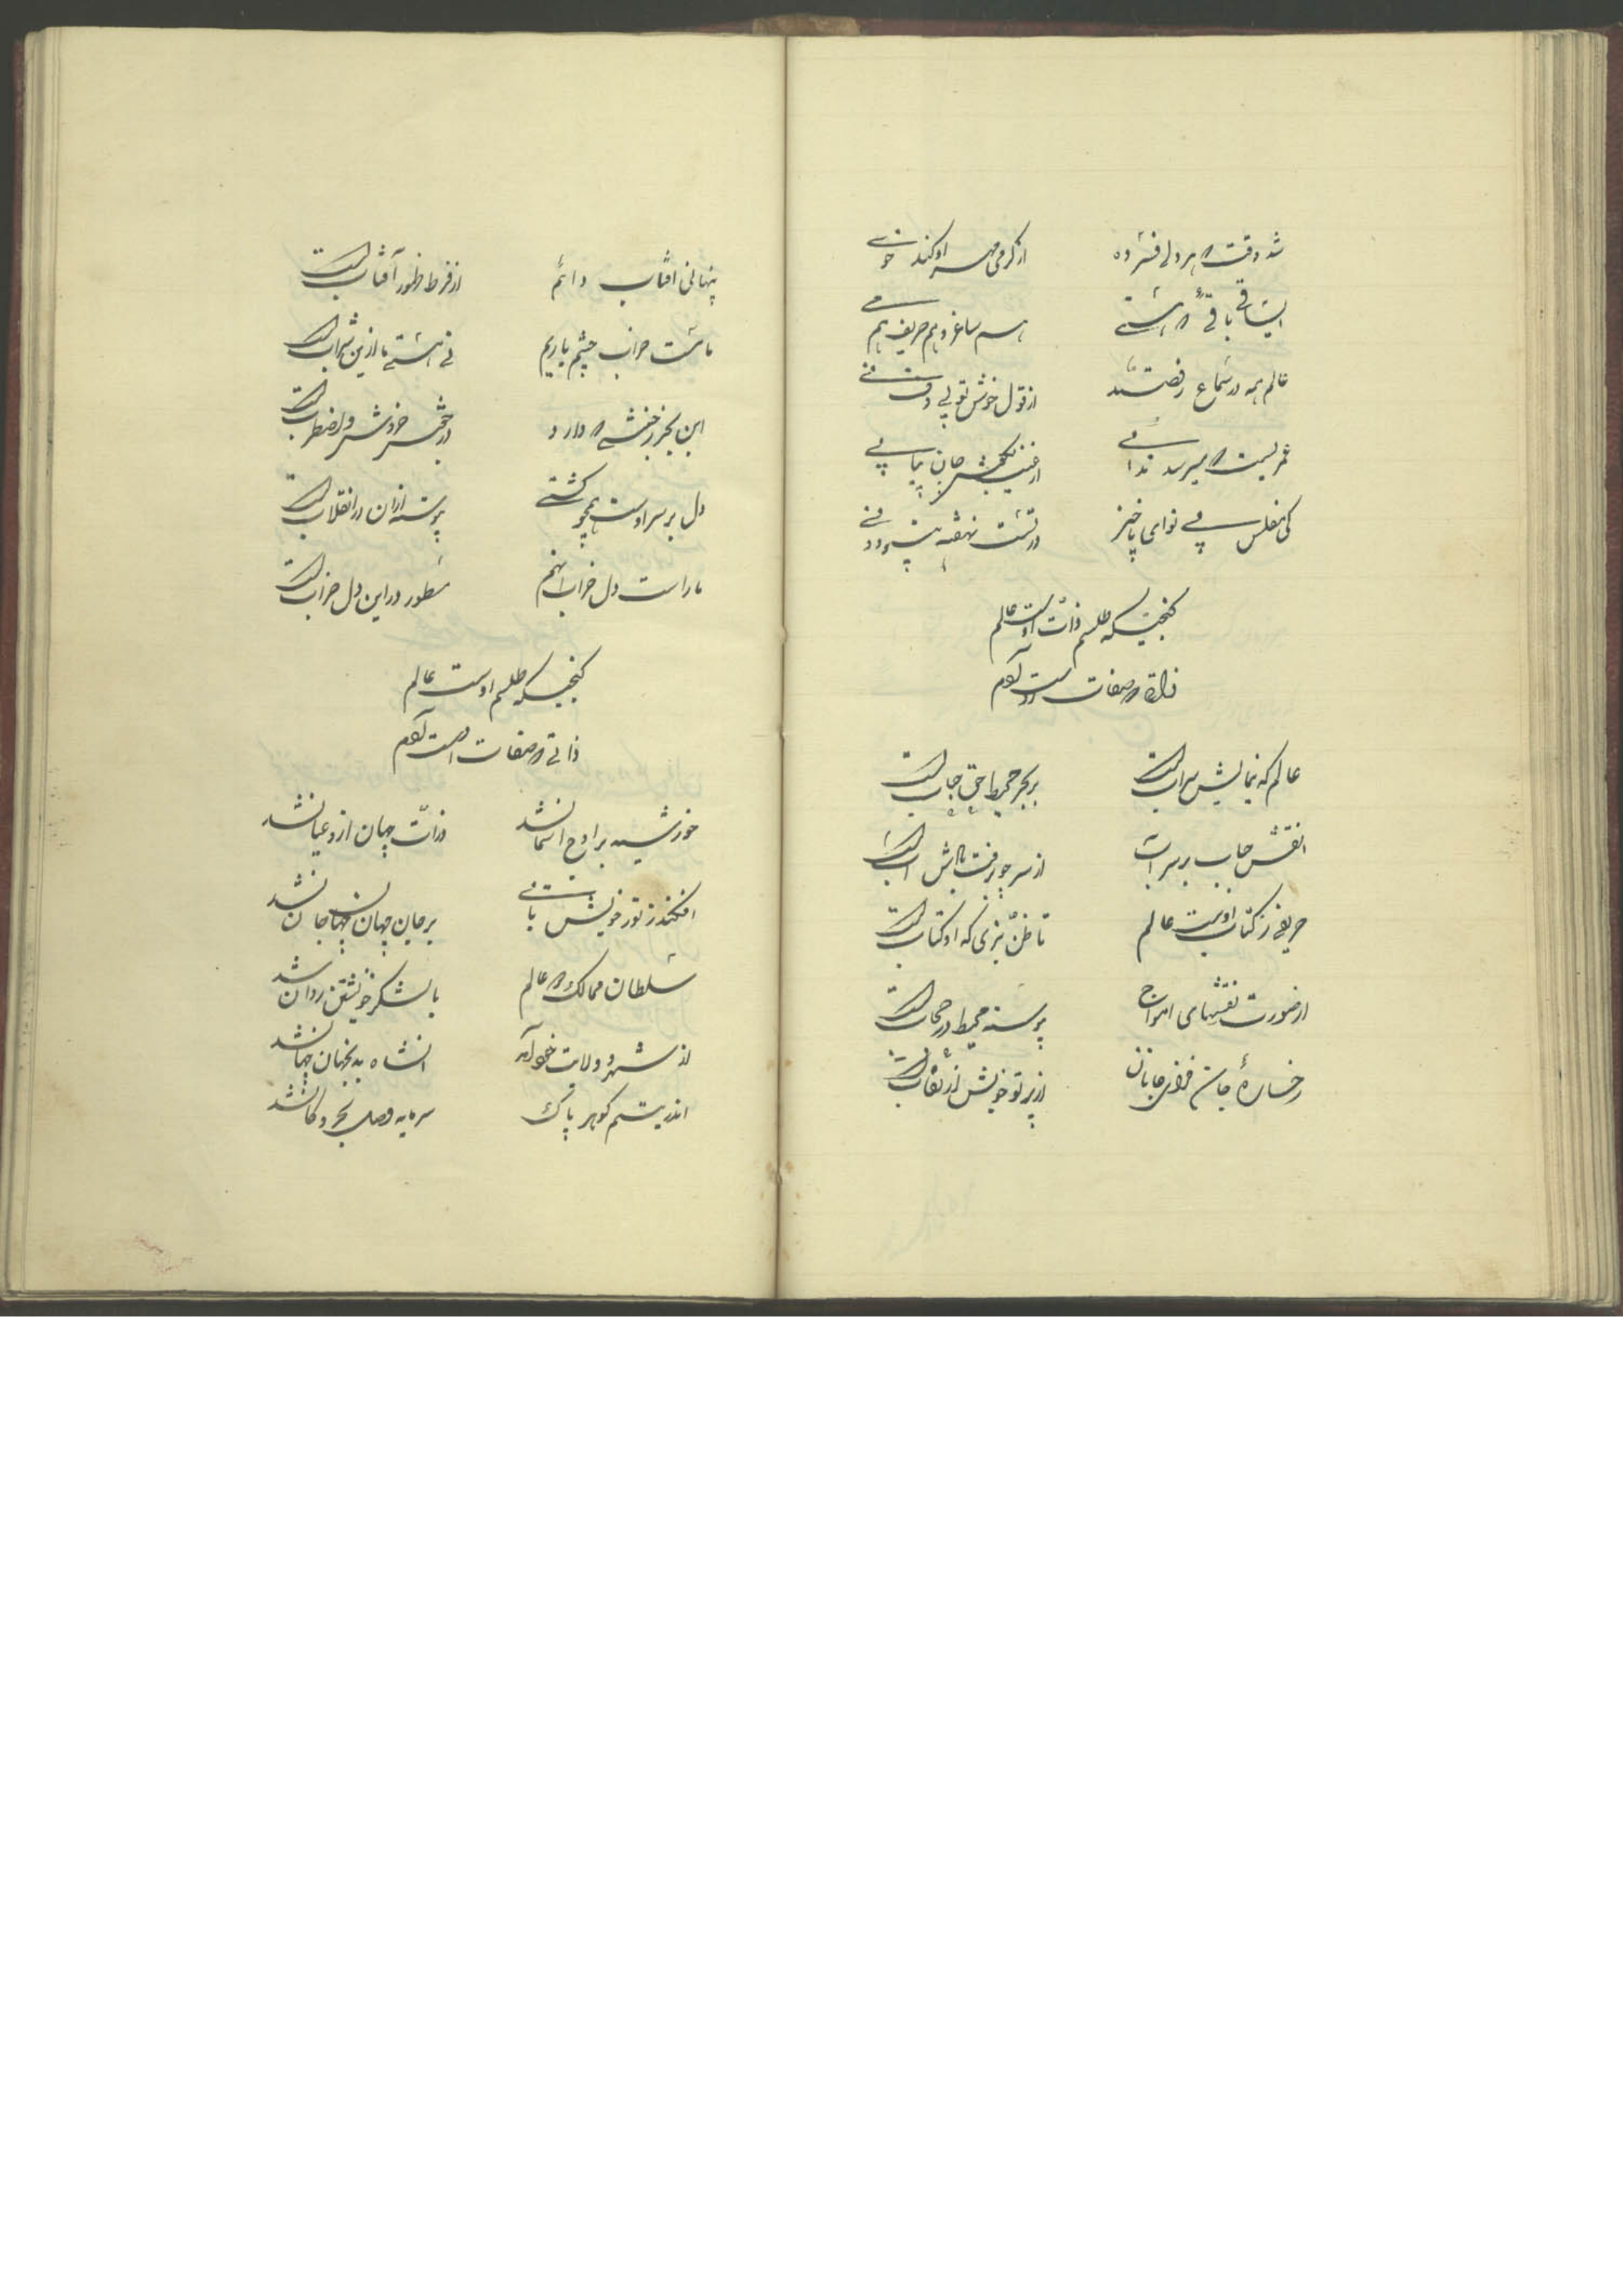 شد وقت که هر دلی فسرده از گرمی مهر او کند خوی
ای ساقی باقئی که هستی هم ساغر و هم حریف هم می
عالم همه در سماع و رقصند از قول خوش تو بی دف و نی
عمریست که میرسد ندائی از غیب بگوش جان پیاپی
کی مفلس بی نوای برخیز در تست نهفته
گنجینکه طلسم ذات اوست عالم
ذاتی که صفات اوست آدم
عالم که نمایش سرابست بر بحر محیط حق حبابست
نقش حباب بر سر آب از سر چو برفت بادش آبست
حرفی ز کتاب اوست عالم تا ظن نبری که او کتابست
از صورت نقشهای امواج پیوسته محیط در حجابست
رخسارهٔ جان فزای جانان از پرتو خویش در نقابست
پنهانی آفتاب دائم از فرط ظهور آفتابست
ما مست خراب چشم یاریم نی مستی ما ازین شرابست
این بحر ز جنبشی که دارد در جوش و خروش و اضطرابست
دل بر سر اوست همچو کشتی پیوسته از آن در انقلابست
ما راست دل خراب انهم مسطور در این دل خرابست
گنجینکه طلسم اوست عالم
ذاتی که صفات اوست آدم
خورشید بر اوج آسمان شد ذرات جهان ازو عیان شد
افکند ز نور خویش تابی بر جان جهان جهان جان شد
سلطان ممالک که عالم با لشکر خویشتن روان شد
از شهر و ولایت خود آمد آنشاه بدین جهان نهان شد
سرمایه وصل بحر و کان شد